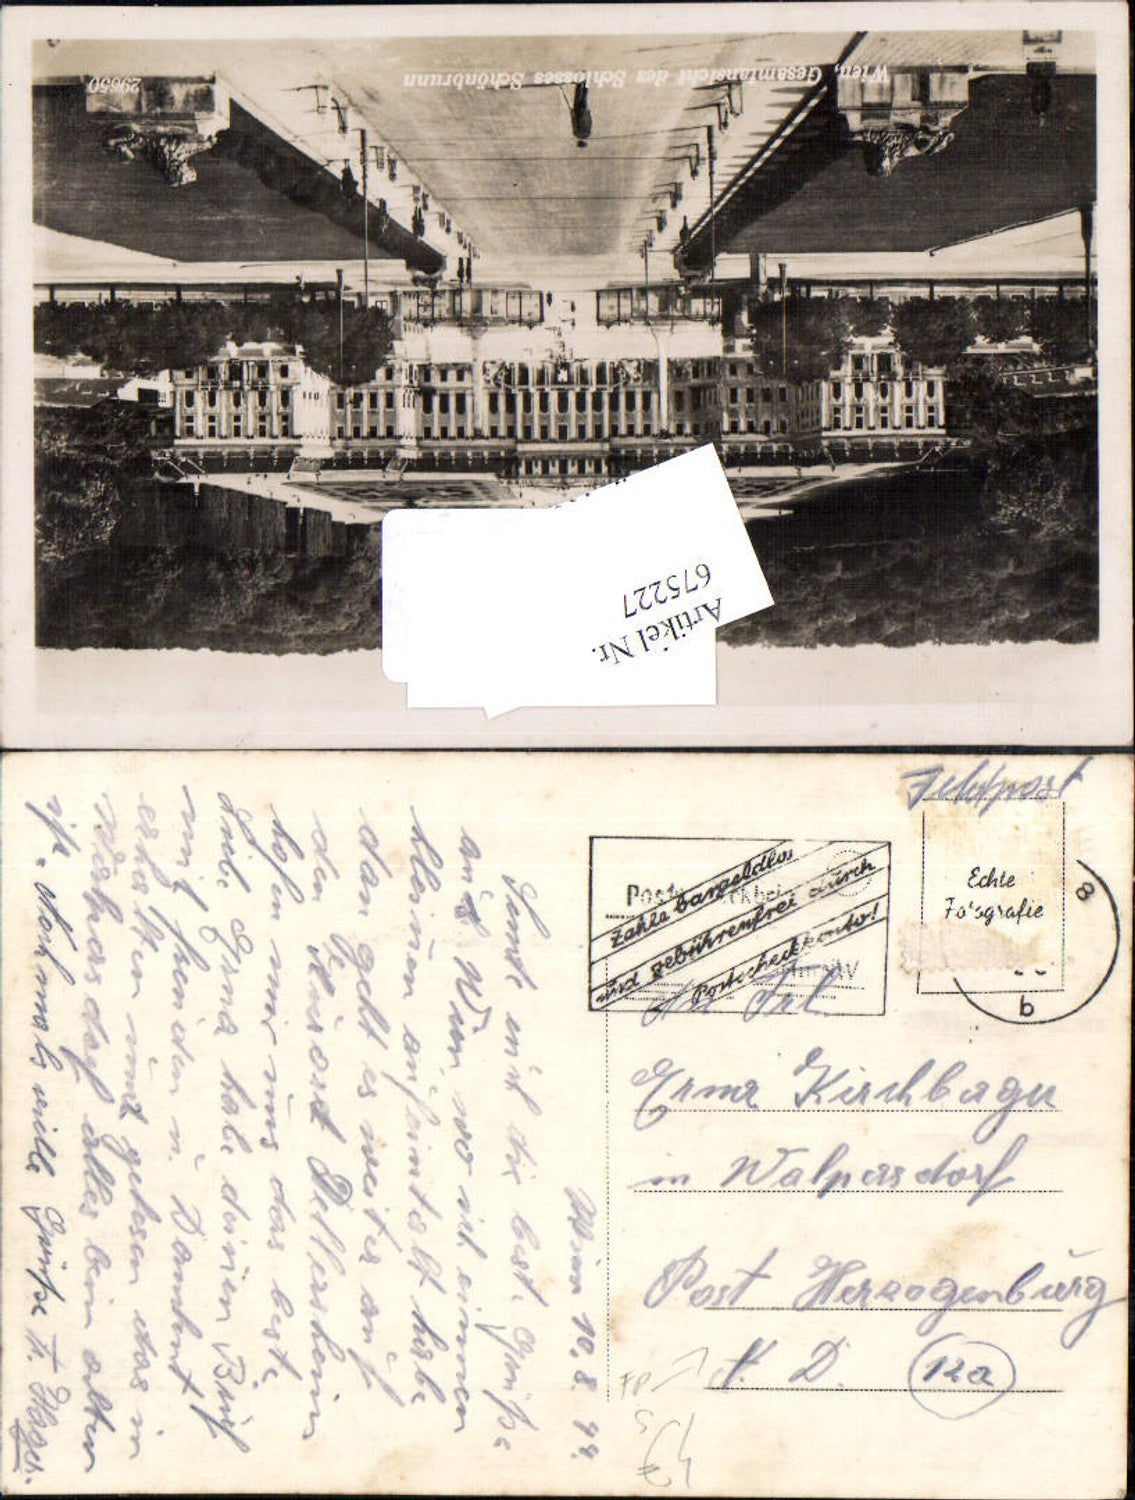 Wien, Gesamtansicht des Schlosses Schönbrunn
29650
Artikel Nr.
675227
Feldpost
Echte
Fotografie
8
b
Zahle bargeldlos
und gebührenfrei durch
Postscheckkonto!
An Frl.
Erma Kirchbager
in Walpersdorf
Post Herzogenburg
N. D. 12a
Wien 10. 8. 44.
Sende mit die best. Grüße
aus Wien, wo ich einen
kleinen aufentalt habe
dan gelt es weiter auf
den
hofen wir uns das beste
Liebe Erna habe deinen Brief
mit freuden u. Dankent
erhalten und gelesen das in
Walpersdorf alles beim alten
ist. Nochmals viele Grüße